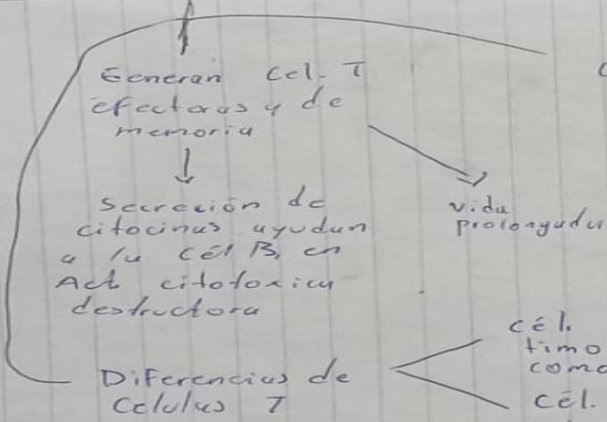 Generan Cel. T
efectoras y de
memoria
Secreción de
citocinas ayudan
a la cél B, en
Act citotoxica
destructora
vida
prolongada
Diferencias de
Celulas T
cél.
timo
como
cél.